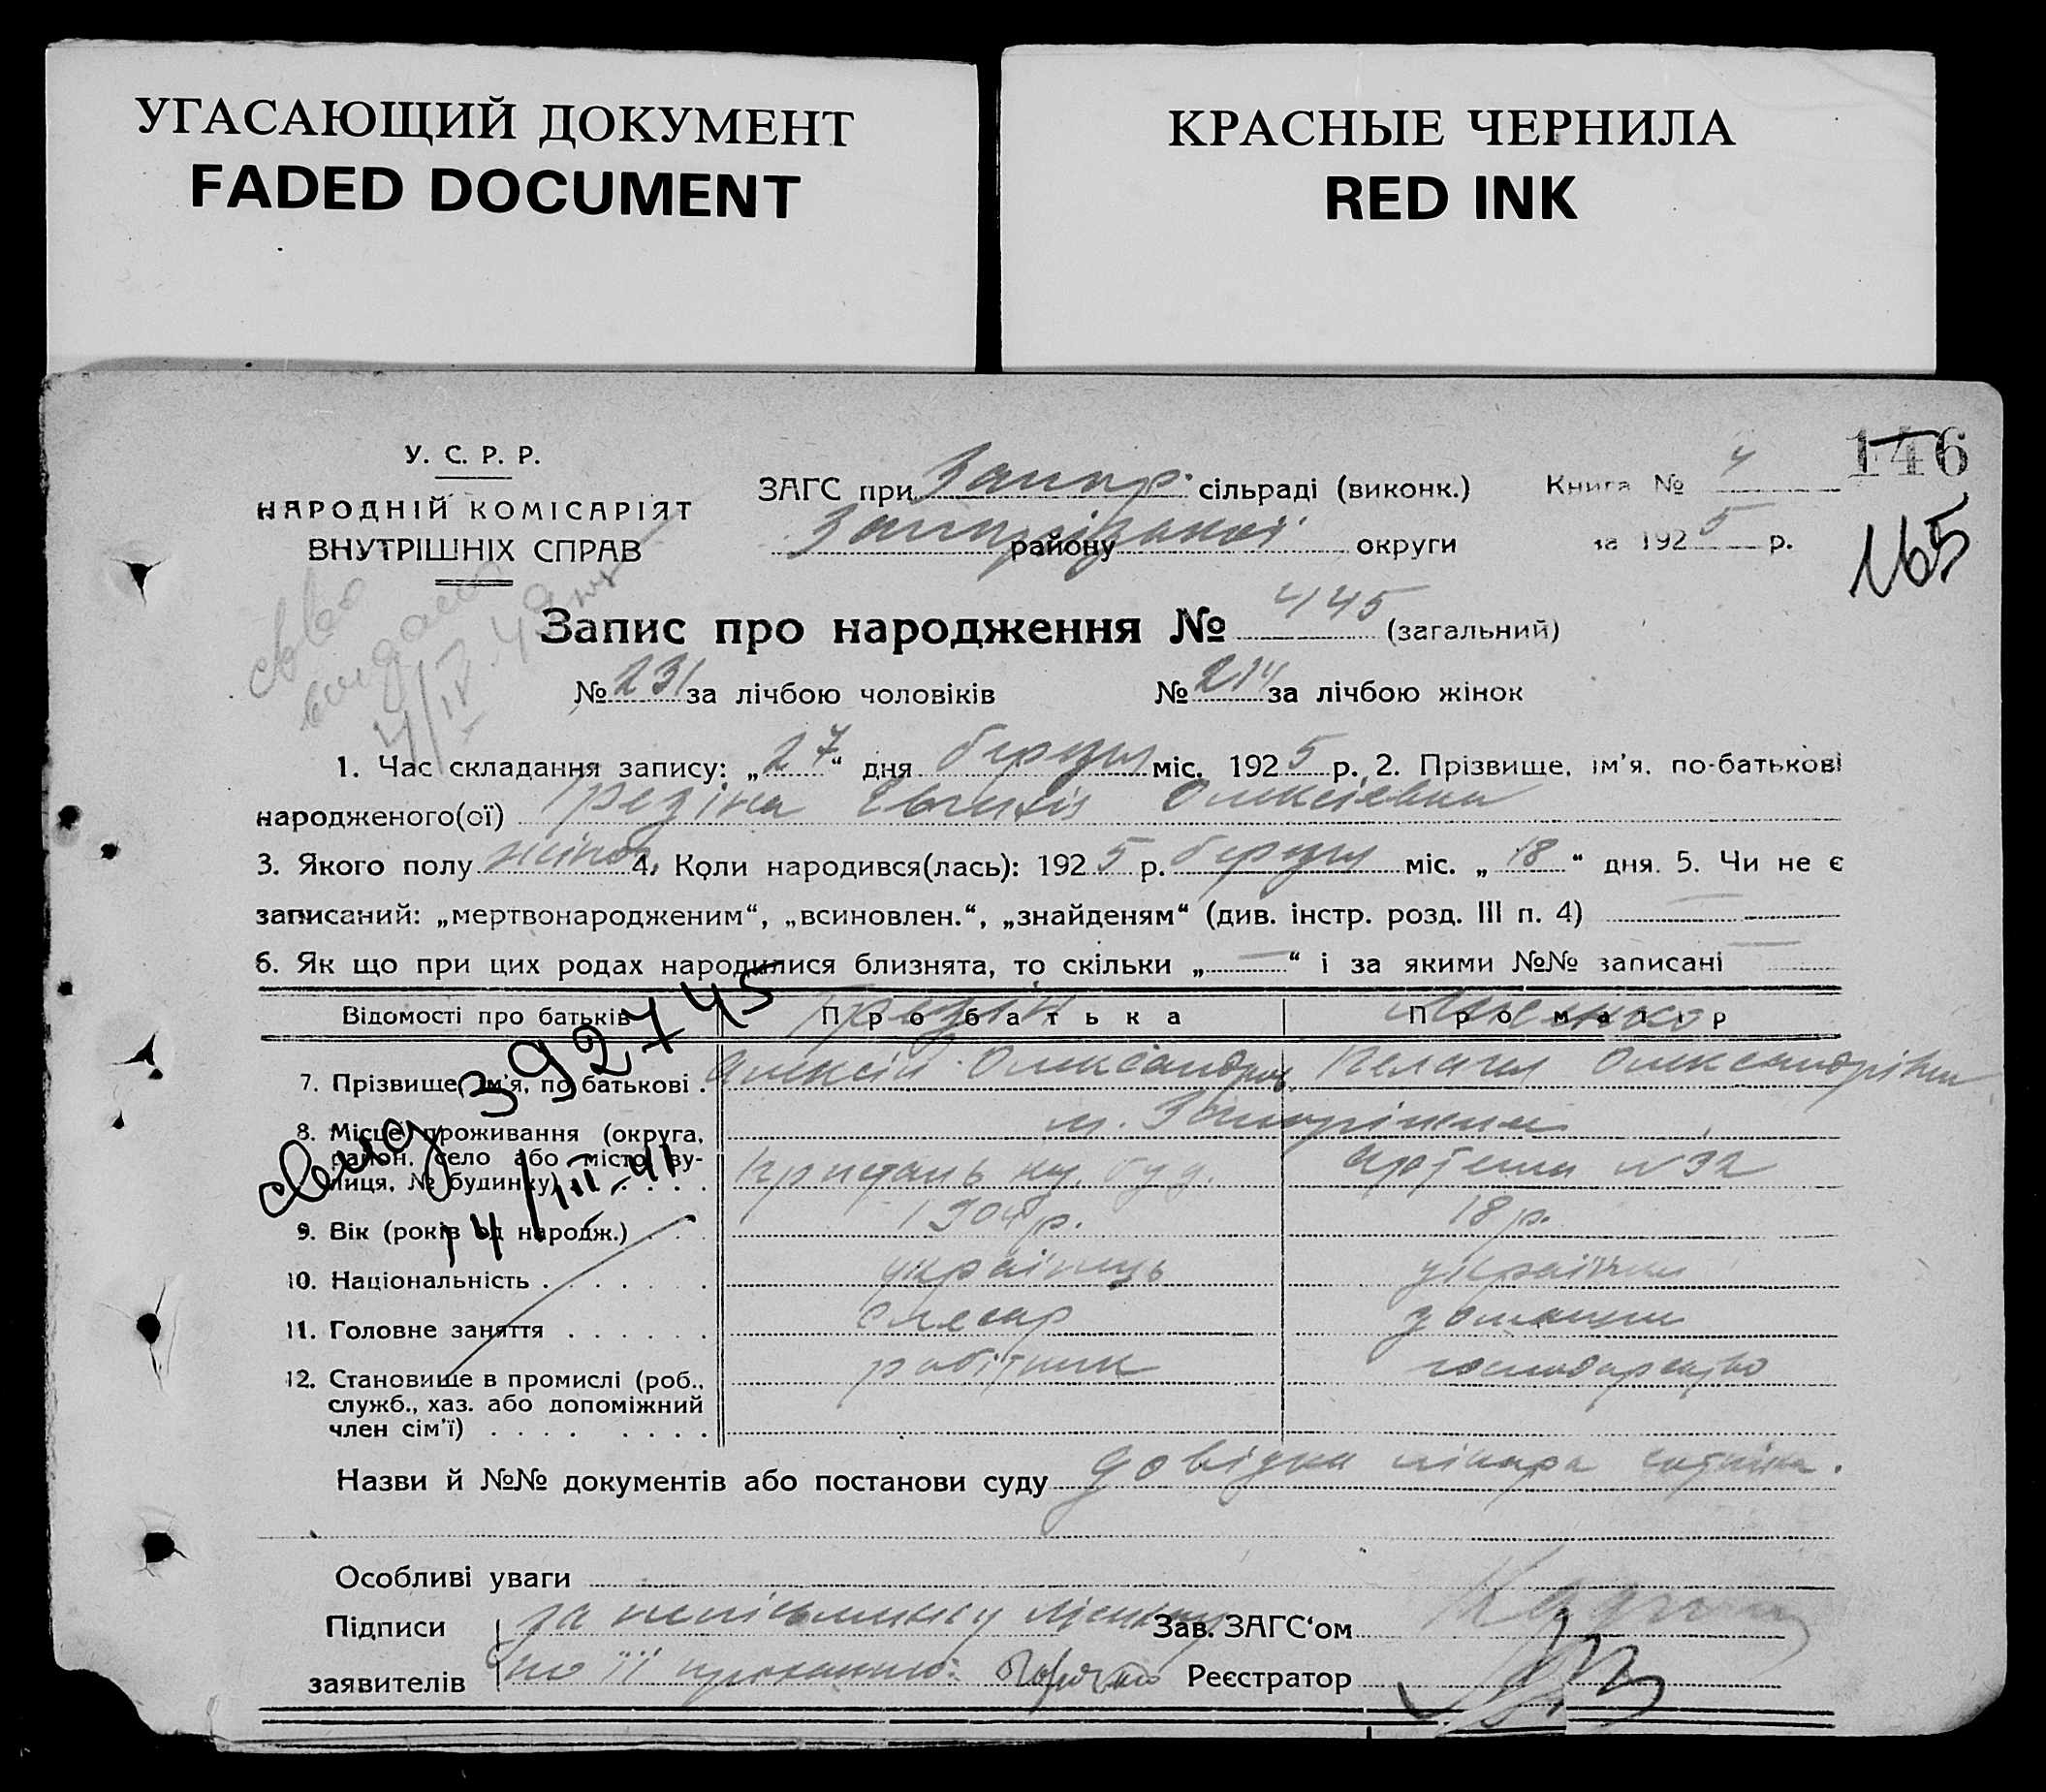 УГАСАЮЩИЙ ДОКУМЕНТ
FADED DOCUMENT
КРАСНЫЕ ЧЕРНИЛА
RED INK
У. С. Р. Р.
НАРОДНІЙ КОМІСАРІЯТ
ВНУТРІШНІХ СПРАВ
ЗАГС при Запор. сільраді (виконк.)
Запорізької району округи
Книга № 4
за 1925 р.
146
165
Запис про народження № 445 (загальний)
№ 231 за лічбою чоловіків № 214 за лічбою жінок
1. Час складання запису: „27“ дня березня міс. 1925 р. 2. Прізвище, ім'я, по-батькові
народженого(ої) Грезіна Євгенія Олексіевна
3. Якого полу жіноч. 4. Коли народився(лась): 1925 р. березня міс. „18“ дня. 5. Чи не є
записаний: „мертвонародженим“, „всиновлен.“, „знайденям“ (див. інстр. розд. III п. 4) —
6. Як що при цих родах народилися близнята, то скільки „—“ і за якими №№ записані —
Відомості про батьків Про батька Про матір
Грезін Лисенко
7. Прізвище, ім'я, по батькові . Олексій Олександров. Пелагея Олександрівна
8. Місце проживання (округа, м. Запоріжжя
район, село або місто, ву-
лиця, № будинку) . . . . . Пристань буд. Артема № 32
9. Вік (років од народж.) . . . 1904 р. 18 р.
10. Національність . . . . . . українець українка
11. Головне заняття . . . . . . слесар домашнє
12. Становище в промислі (роб., робітник господарство
служб., хаз. або допоміжний
член сім'ї) . . . . . . . .
свид 392745
14/III-41
видано
4/IV-49
Назви й №№ документів або постанови суду довідка лікаря
Особливі уваги
Підписи за неписьменну Лисенко Зав. ЗАГС‘ом
заявителів по її проханню: Реєстратор